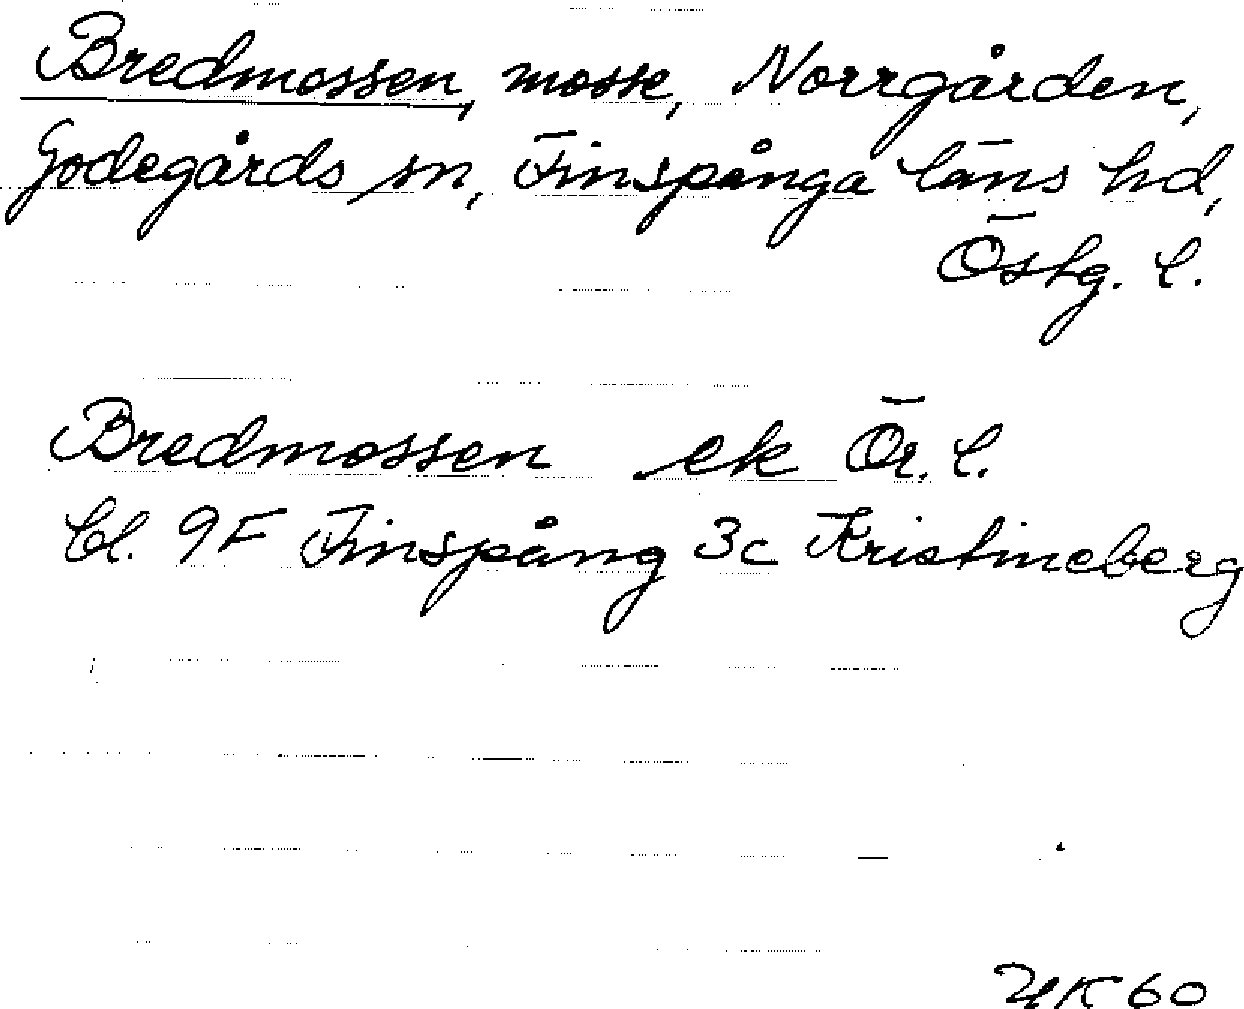 Bredmossen, mosse, Norrgården,
Godegårds sn, Finspånga läns hd,
Östg. l.
Bredmossen ek Ör. l.
bl. 9F Finspång 3c Kristineberg
UK 60